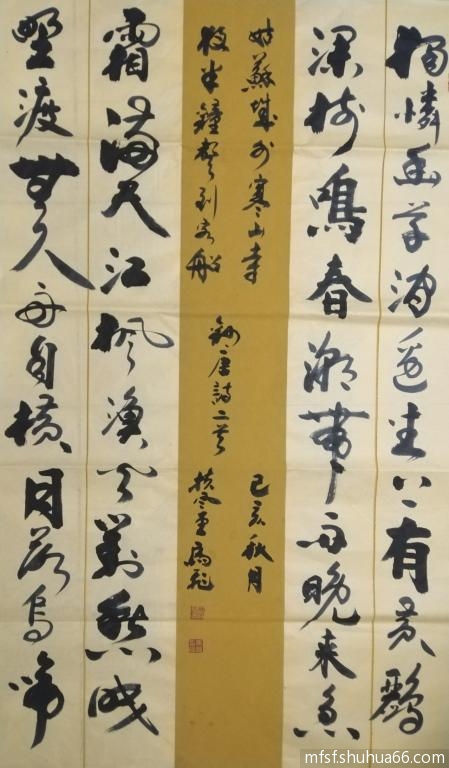 獨憐幽草澗邊生上有黃鸝
深樹鳴春潮帶雨晚來急
野渡無人舟自橫月落烏啼
霜滿天江楓漁火對愁眠
姑蘇城外寒山寺
夜半鐘聲到客船
錄唐詩二首
己亥秋月
mfsf.shuhua66.com